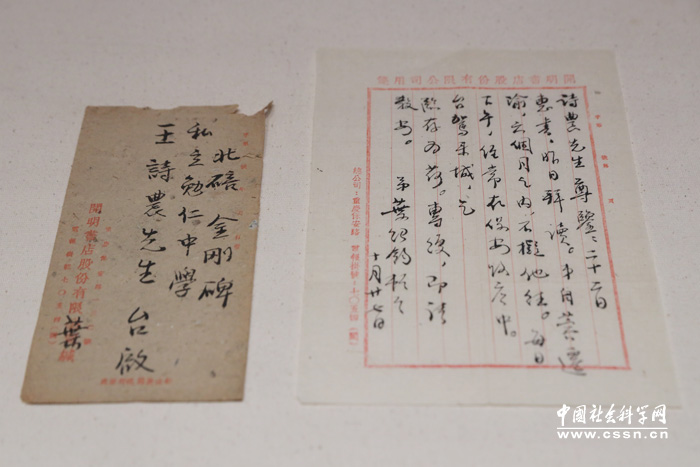 北碚 金剛碑
私立勉仁中學
王詩農先生 台啟
開明書店股份有限
葉緘
開明書店股份有限公司用箋
詩農先生尊鑒：二十二日
惠書，昨日拜讀。弟自蓉遷
渝，六個月之內不擬他往。每日
下午，經常在保安路店中。
台駕來城，乞
臨存為荷。專復，即請
教安。 弟葉紹鈞頓首
十月廿七日
總公司：重慶保安路
中国社会科学网
www.cssn.cn